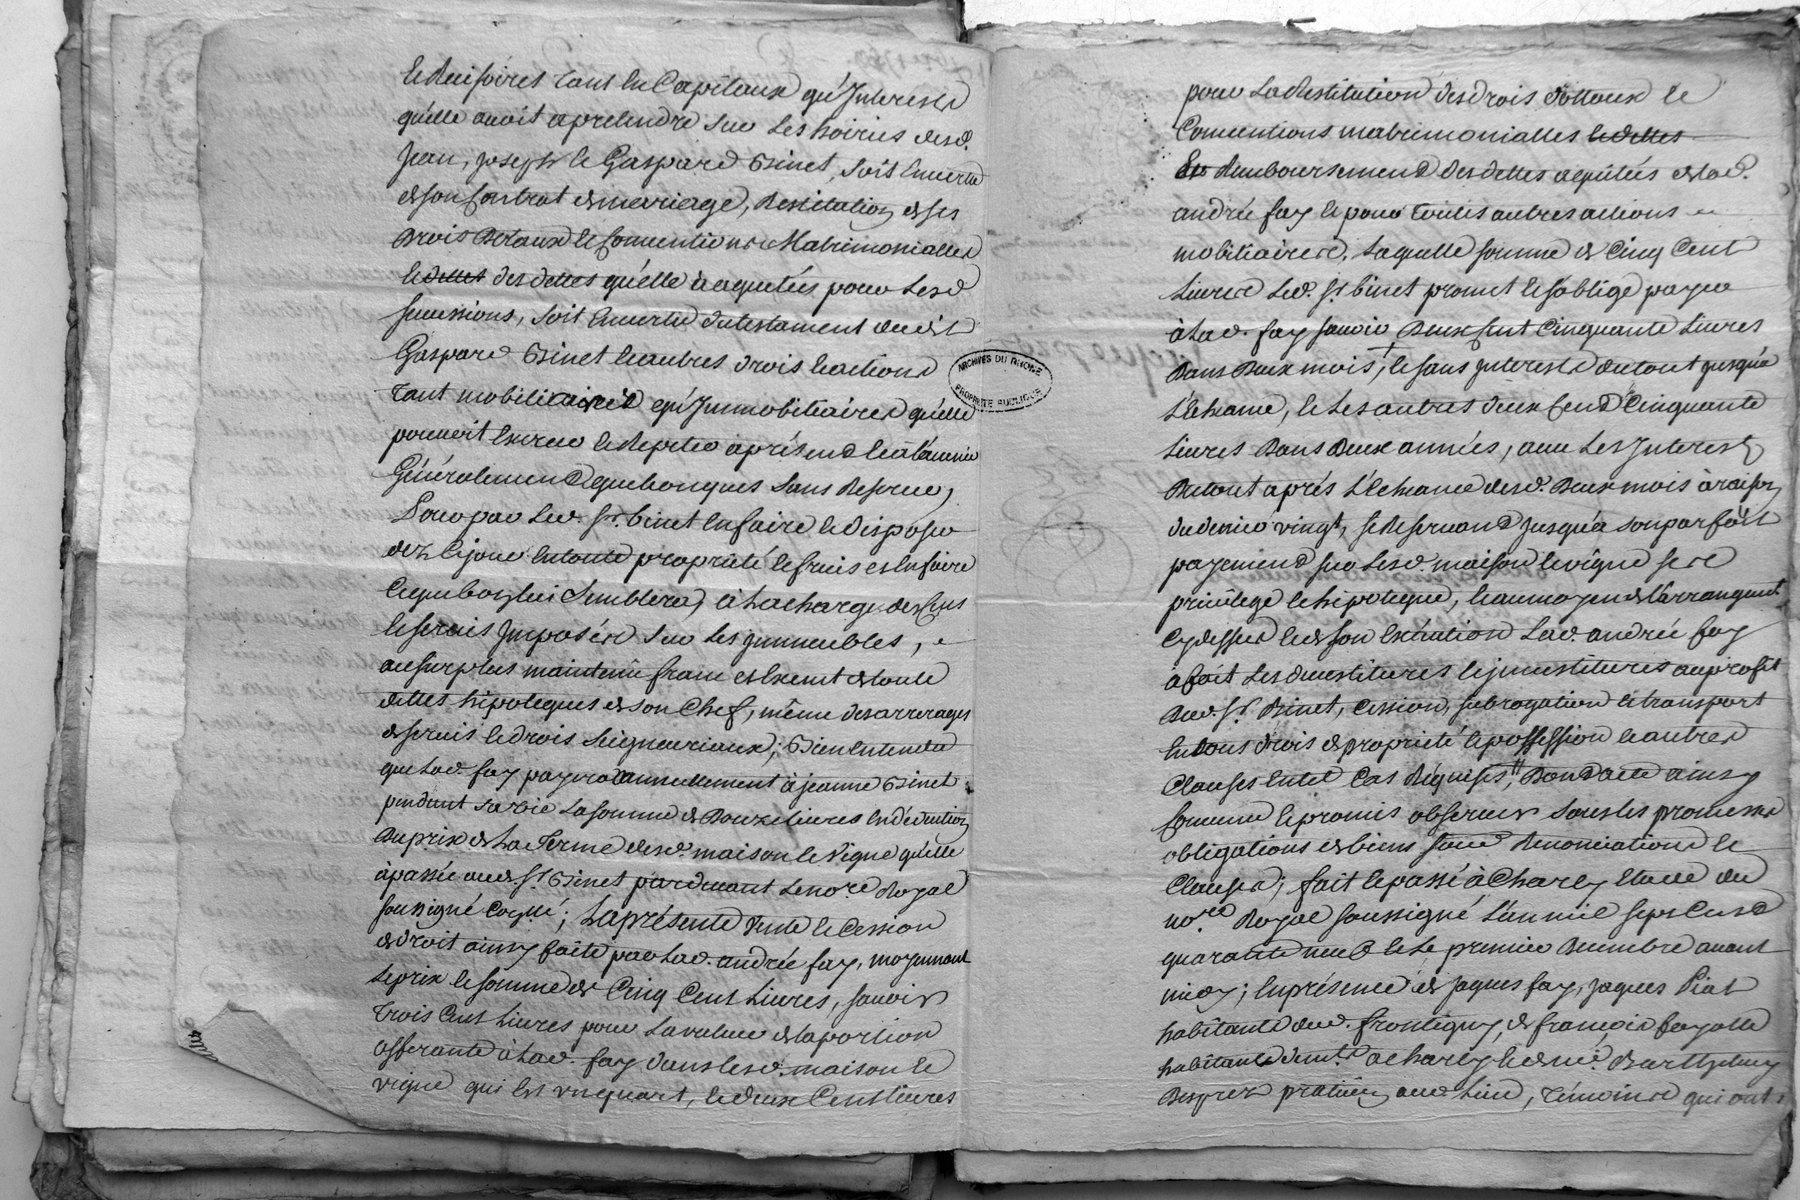 et accessoires tant en Capitaux qu'Interests
qu'elle avoit a pretendre sur Les hoiries desd.
Jean, joseph et Gaspard Binet, soit en vertu
de son Contrat de mariage, Restitution de ses
Droits Dotaux et Conventions Matrimonialles
et dettes des dettes qu'elle a aquitées pour Lesd
successions, soit en vertu du testament dudit
Gaspard Binet et autres droits et actions
tant mobiliaires qu'Immobiliaires qu'elle
pouvoit exercer et repeter à présend et à l'avenir
Généralement quelconques sans Reserve,
Pour par Led. Sr. binet en faire et disposer
dez ce jour en toute propriété et fruits et en faire
ce que bon luy Semblera, à la charge des Cens
et servis Imposés sur Les immeubles,
au surplus maintenu franc et Exemt de toute
dettes hipoteques de son Chef, même des arrerages
de servis et droits Seigneuriaux; Bien entendu
que Lad. fay payera annuellement à jeanne Binet
pendant sa vie La somme de Douze Livres en déduction
Du prix de La ferme desd. maison et Vigne qu'elle
à passée aud. Sr. Binet pardevant Le nore. Royal
soussigné; La présente vente et Cession
de droit ainsy faite par Lad. andrée fay, moyennant
Le prix et somme de Cinq Cent Livres, sçavoir
Trois Cent Livres pour La valeur de la portion
afferante à Lad. fay dans lesd. maison et
vigne qui est un quart, et deux Cent livres
pour La Restitution des droits dottaux et
Conventions matrimonialles et dettes
Et Remboursement Des dettes aquitées de lad.
andrée fay et pour toutes autres actions
mobiliaires, Laquelle somme de Cinq Cent
Livres Led. Sr. binet promet et s'oblige payer
à Lad. fay sçavoir Deux Cent Cinquante Livres
Dans Deux mois, et sans Interests du tout jusqu'a
L'Echeance, et Les autres deux Cend Cinquante
Livres Dans deux années, avec Les Interests
Du tout aprés L'Echeance desd. Deux mois à raison
du denier vingt, se Reservand jusqu'a son parfait
payemend sur Lesd. maison et vigne ses
privilege et hipoteque, et au moyen de L'arrangemt.
Cy dessus et de son Exécution Lad. andrée fay
à fait Les devestitures et jnvestitures au profit
Dud. Sr. Binet, Cession, subrogation et transport
en tous droits de proprieté et possession et autres
Clauses en tel Cas Réquises, Dond acte ainsy
Convenu et promis observer sous les promesses
obligations de biens Renonciations et
Clauses; fait et passé à Charly Etude du
nore. Royal soussigné L'an mil sept Cend
quarante neuf et Le premier Decembre avant
midy; en présence de jaques fay, jaques Piat
habitants dud. frontigny, de françois fayolle
habitant demt. a charly et de me. Barthelemy
Desprez praticien aud. Lieu, témoins qui ont
ARCHIVES DU RHONE
PROPRIETE PUBLIQUE